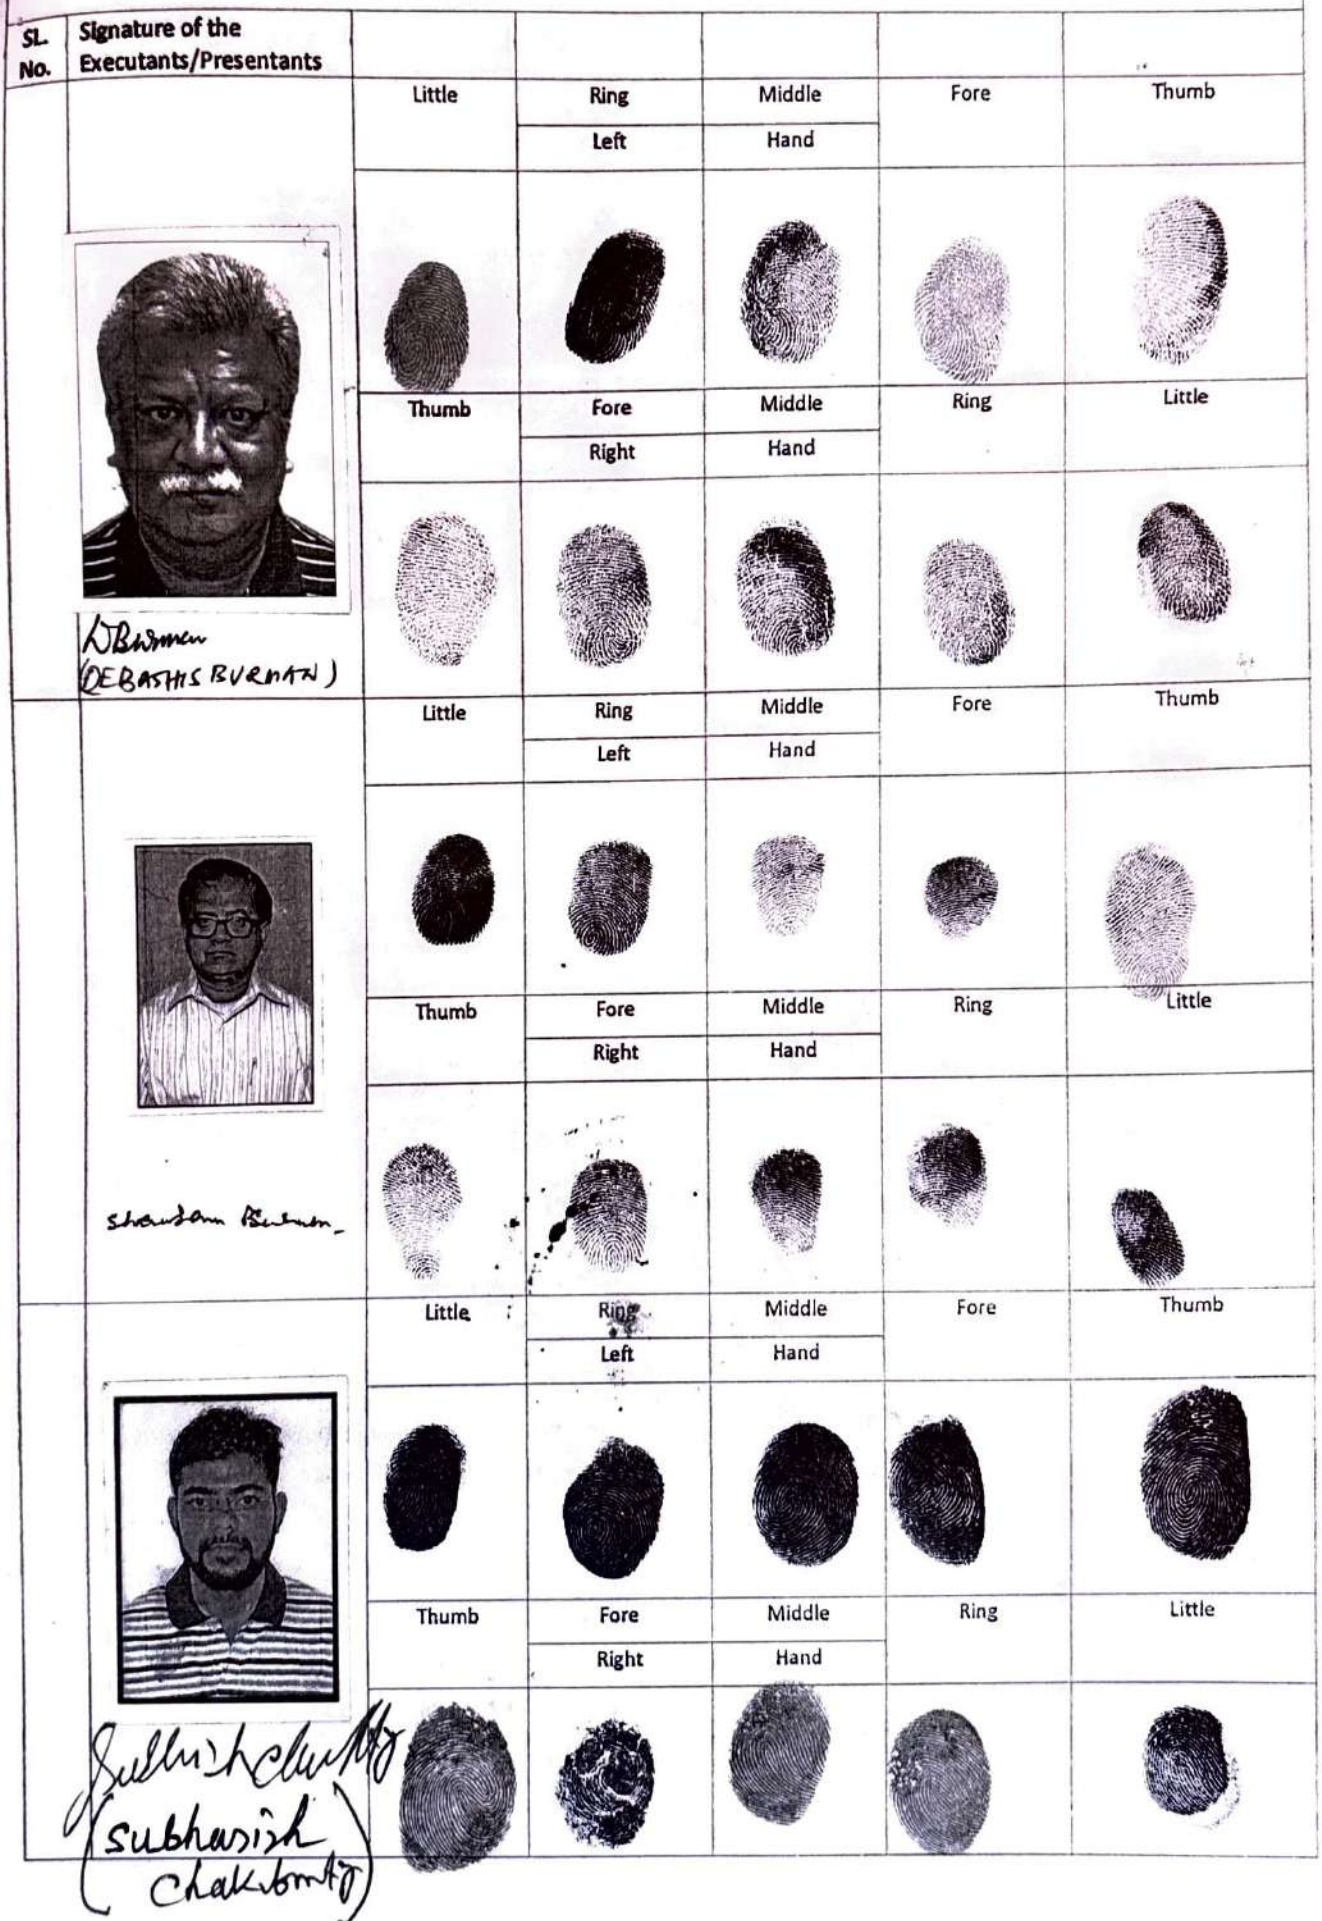 SL. No.
Signature of the Executants/Presentants
Little Ring Middle Fore Thumb
Left Hand
Thumb Fore Middle Ring Little
Right Hand
DBurman
(DEBASHIS BURMAN)
Little Ring Middle Fore Thumb
Left Hand
Thumb Fore Middle Ring Little
Right Hand
Burman
Little Ring Middle Fore Thumb
Left Hand
Thumb Fore Middle Ring Little
Right Hand
(Subhasish
Chakraborty)